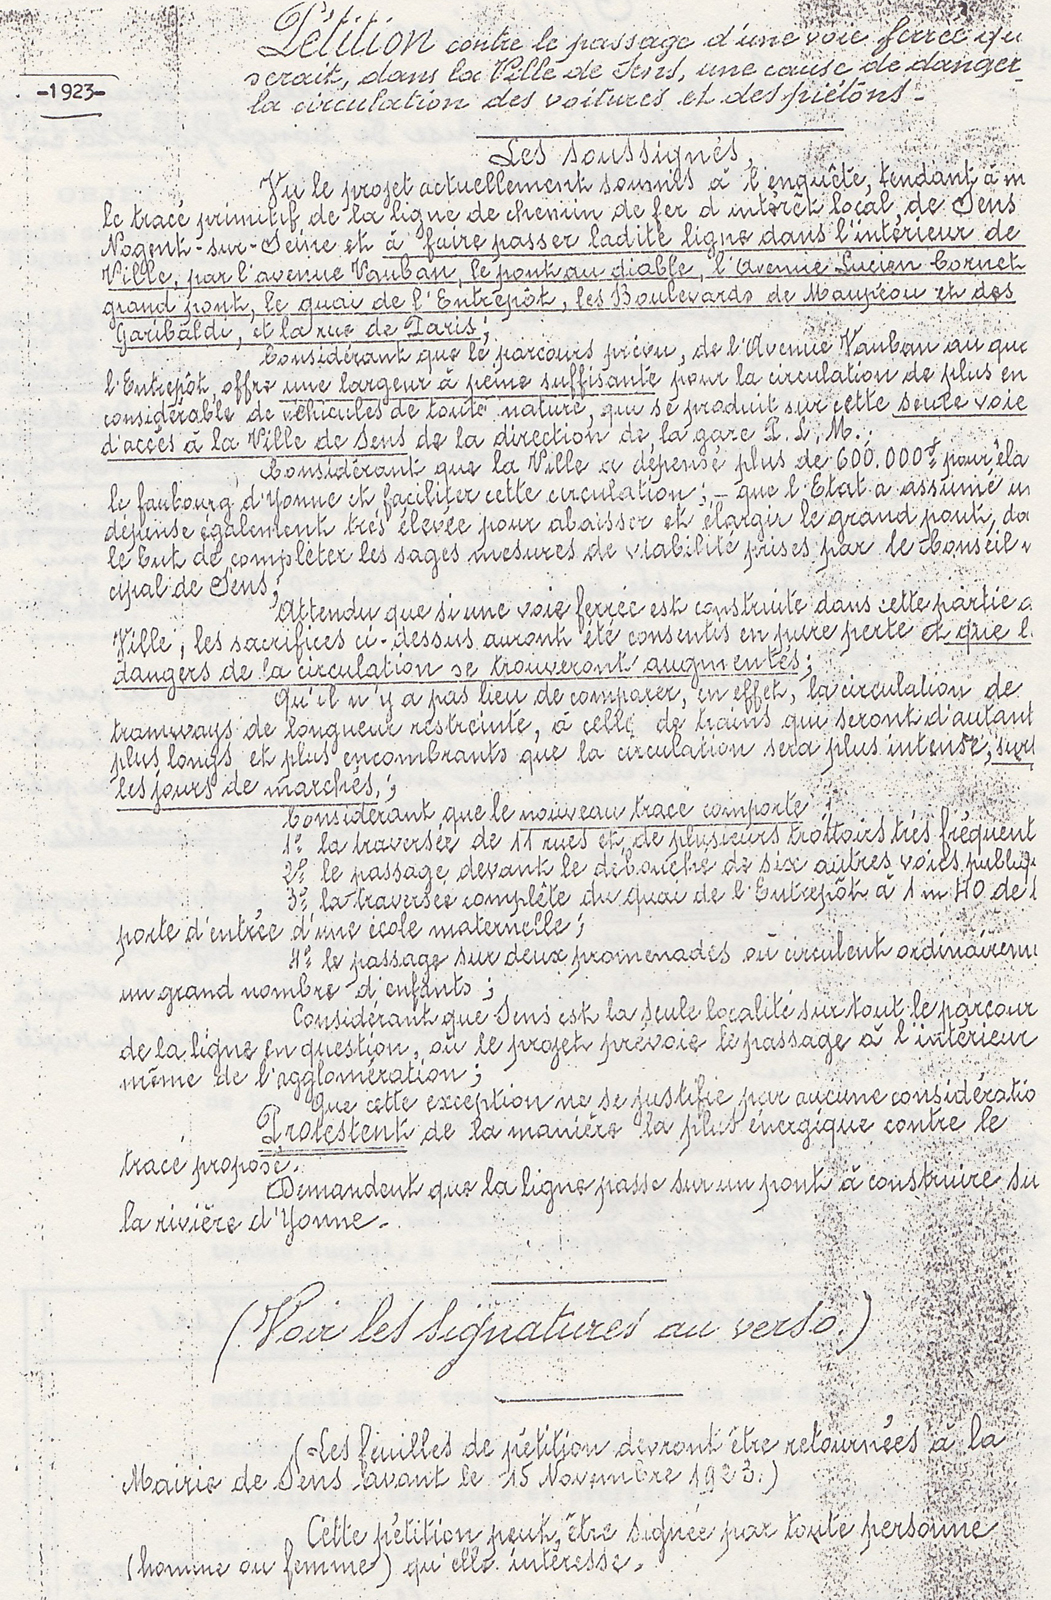 Pétition contre le passage d'une voie ferrée qu
serait, dans la Ville de Sens, une cause de danger
-1923-
la circulation des voitures et des piétons.
Les soussignés,
Vu le projet actuellement soumis à l'enquête, tendant à m
le tracé primitif de la ligne de chemin de fer d'intérêt local, de Sens
Nogent-sur-Seine et à faire passer ladite ligne dans l'intérieur de
Ville, par l'avenue Vauban, le pont au diable, l'Avenue Lucien Cornet
grand pont, le quai de l'Entrepôt, les Boulevards de Maupéou et des
Garibaldi, et la rue de Paris;
Considérant que le parcours prévu, de l'Avenue Vauban au qua
l'Entrepôt, offre une largeur à peine suffisante pour la circulation de plus en
considérable de véhicules de toute nature, qui se produit sur cette seule voie
d'accès à la Ville de Sens de la direction de la gare P.L.M.;
Considérant que la Ville a dépensé plus de 600.000f pour éla
le faubourg d'Yonne et faciliter cette circulation; - que l'Etat a assumé un
dépense également très élevée pour abaisser et élargir le grand pont, da
le but de compléter les sages mesures de viabilité prises par le Conseil
cipal de Sens;
Attendu que si une voie ferrée est construite dans cette partie d
Ville, les sacrifices ci-dessus auront été consentis en pure perte et que l
dangers de la circulation se trouveront augmentés;
Qu'il n'y a pas lieu de comparer, en effet, la circulation de
tramways de longueur restreinte, à celle de trains qui seront d'autant
plus longs et plus encombrants que la circulation sera plus intense, surt
les jours de marchés;
Considérant que le nouveau tracé comporte :
1º la traversée de 11 rues et de plusieurs trottoirs très fréquent
2º le passage devant le débouché de six autres voies publiq
3º la traversée complète du quai de l'Entrepôt à 1m40 de l
porte d'entrée d'une école maternelle;
4º le passage sur deux promenades où circulent ordinaireme
un grand nombre d'enfants;
Considérant que Sens est la seule localité sur tout le parcour
de la ligne en question, où le projet prévoie le passage à l'intérieur
même de l'agglomération;
Que cette exception ne se justifie par aucune considératio
Protestent de la manière la plus énergique contre le
tracé proposé.
Demandent que la ligne passe sur un pont à construire su
la rivière d'Yonne.
(Voir les signatures au verso.)
(Les feuilles de pétition devront être retournées à la
Mairie de Sens avant le 15 Novembre 1923.)
Cette pétition peut être signée par toute personne
(homme ou femme) qu'elle intéresse.